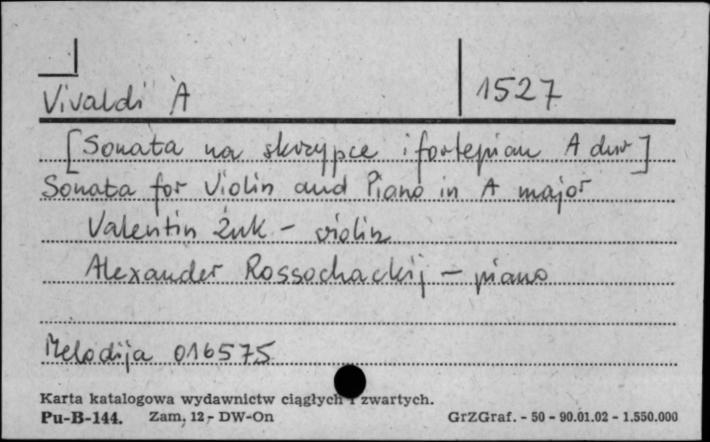 Vivaldi A 1527
[Sonata na skrzypce i fortepian A dur]
Sonata for Violin and Piano in A major
Valentin Żuk - violin
Alexander Rossochackij - piano
Melodija 016575
Karta katalogowa wydawnictw ciągłych i zwartych.
Pu-B-144. Zam. 12 - DW-On GrZGraf. - 50 - 90.01.02 - 1.550.000